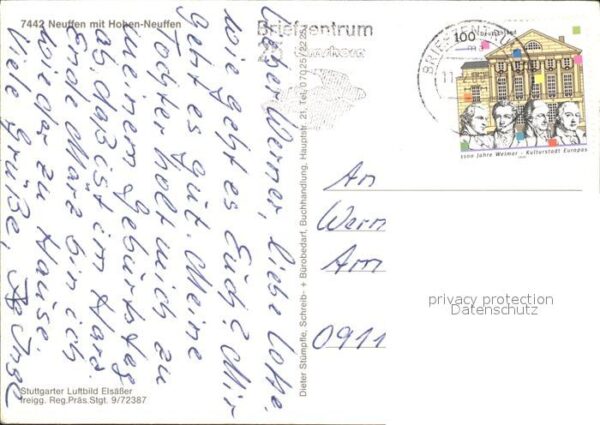 7442 Neuffen mit Hohen-Neuffen
Lieber Werner, liebe Lotte.
wie geht es Euch? Mir
geht es gut. Meine
Tochter holt mich zu
meinem Geburtstag
ab, daß ist im
Ende März bin ich
wieder zu Hause.
Viele Grüße, Inge
Stuttgarter Luftbild Elsäßer
freigg. Reg.Präs.Stgt. 9/72387
Dieter Stümpfle, Schreib- + Bürobedarf, Buchhandlung, Hauptstr. 21, Tel. 07025/2225
Briefzentrum
BRIEFZENTRUM
100 Deutschland
1100 Jahre Weimar · Kulturstadt Europas
An
Wern
Am
0911
privacy protection
Datenschutz